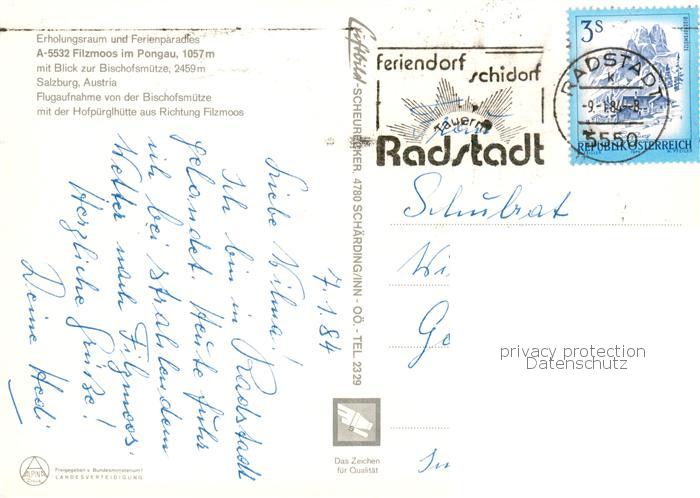 Erholungsraum und Ferienparadies
A-5532 Filzmoos im Pongau, 1057 m
mit Blick zur Bischofsmütze, 2459 m
Salzburg, Austria
Flugaufnahme von der Bischofsmütze
mit der Hofpürglhütte aus Richtung Filzmoos
7.1.84
Liebe Wilma!
Ich bin in Radstadt
gelandet. Heute fuhr
ich bei strahlendem
Wetter nach Filzmoos.
Herzliche Grüße!
Deine Hedi
Freigegeben v. Bundesministerium f.
LANDESVERTEIDIGUNG
Luftbild-SCHEURECKER, 4780 SCHÄRDING/INN - OÖ., TEL. 2329
Das Zeichen
für Qualität
Feriendorf
Schidorf
Radstadt
3 S
RADSTADT
-9.-1.84-8
5550
REPUBLIK ÖSTERREICH
Schulrat
Wi
Ge
privacy protection
Datenschutz